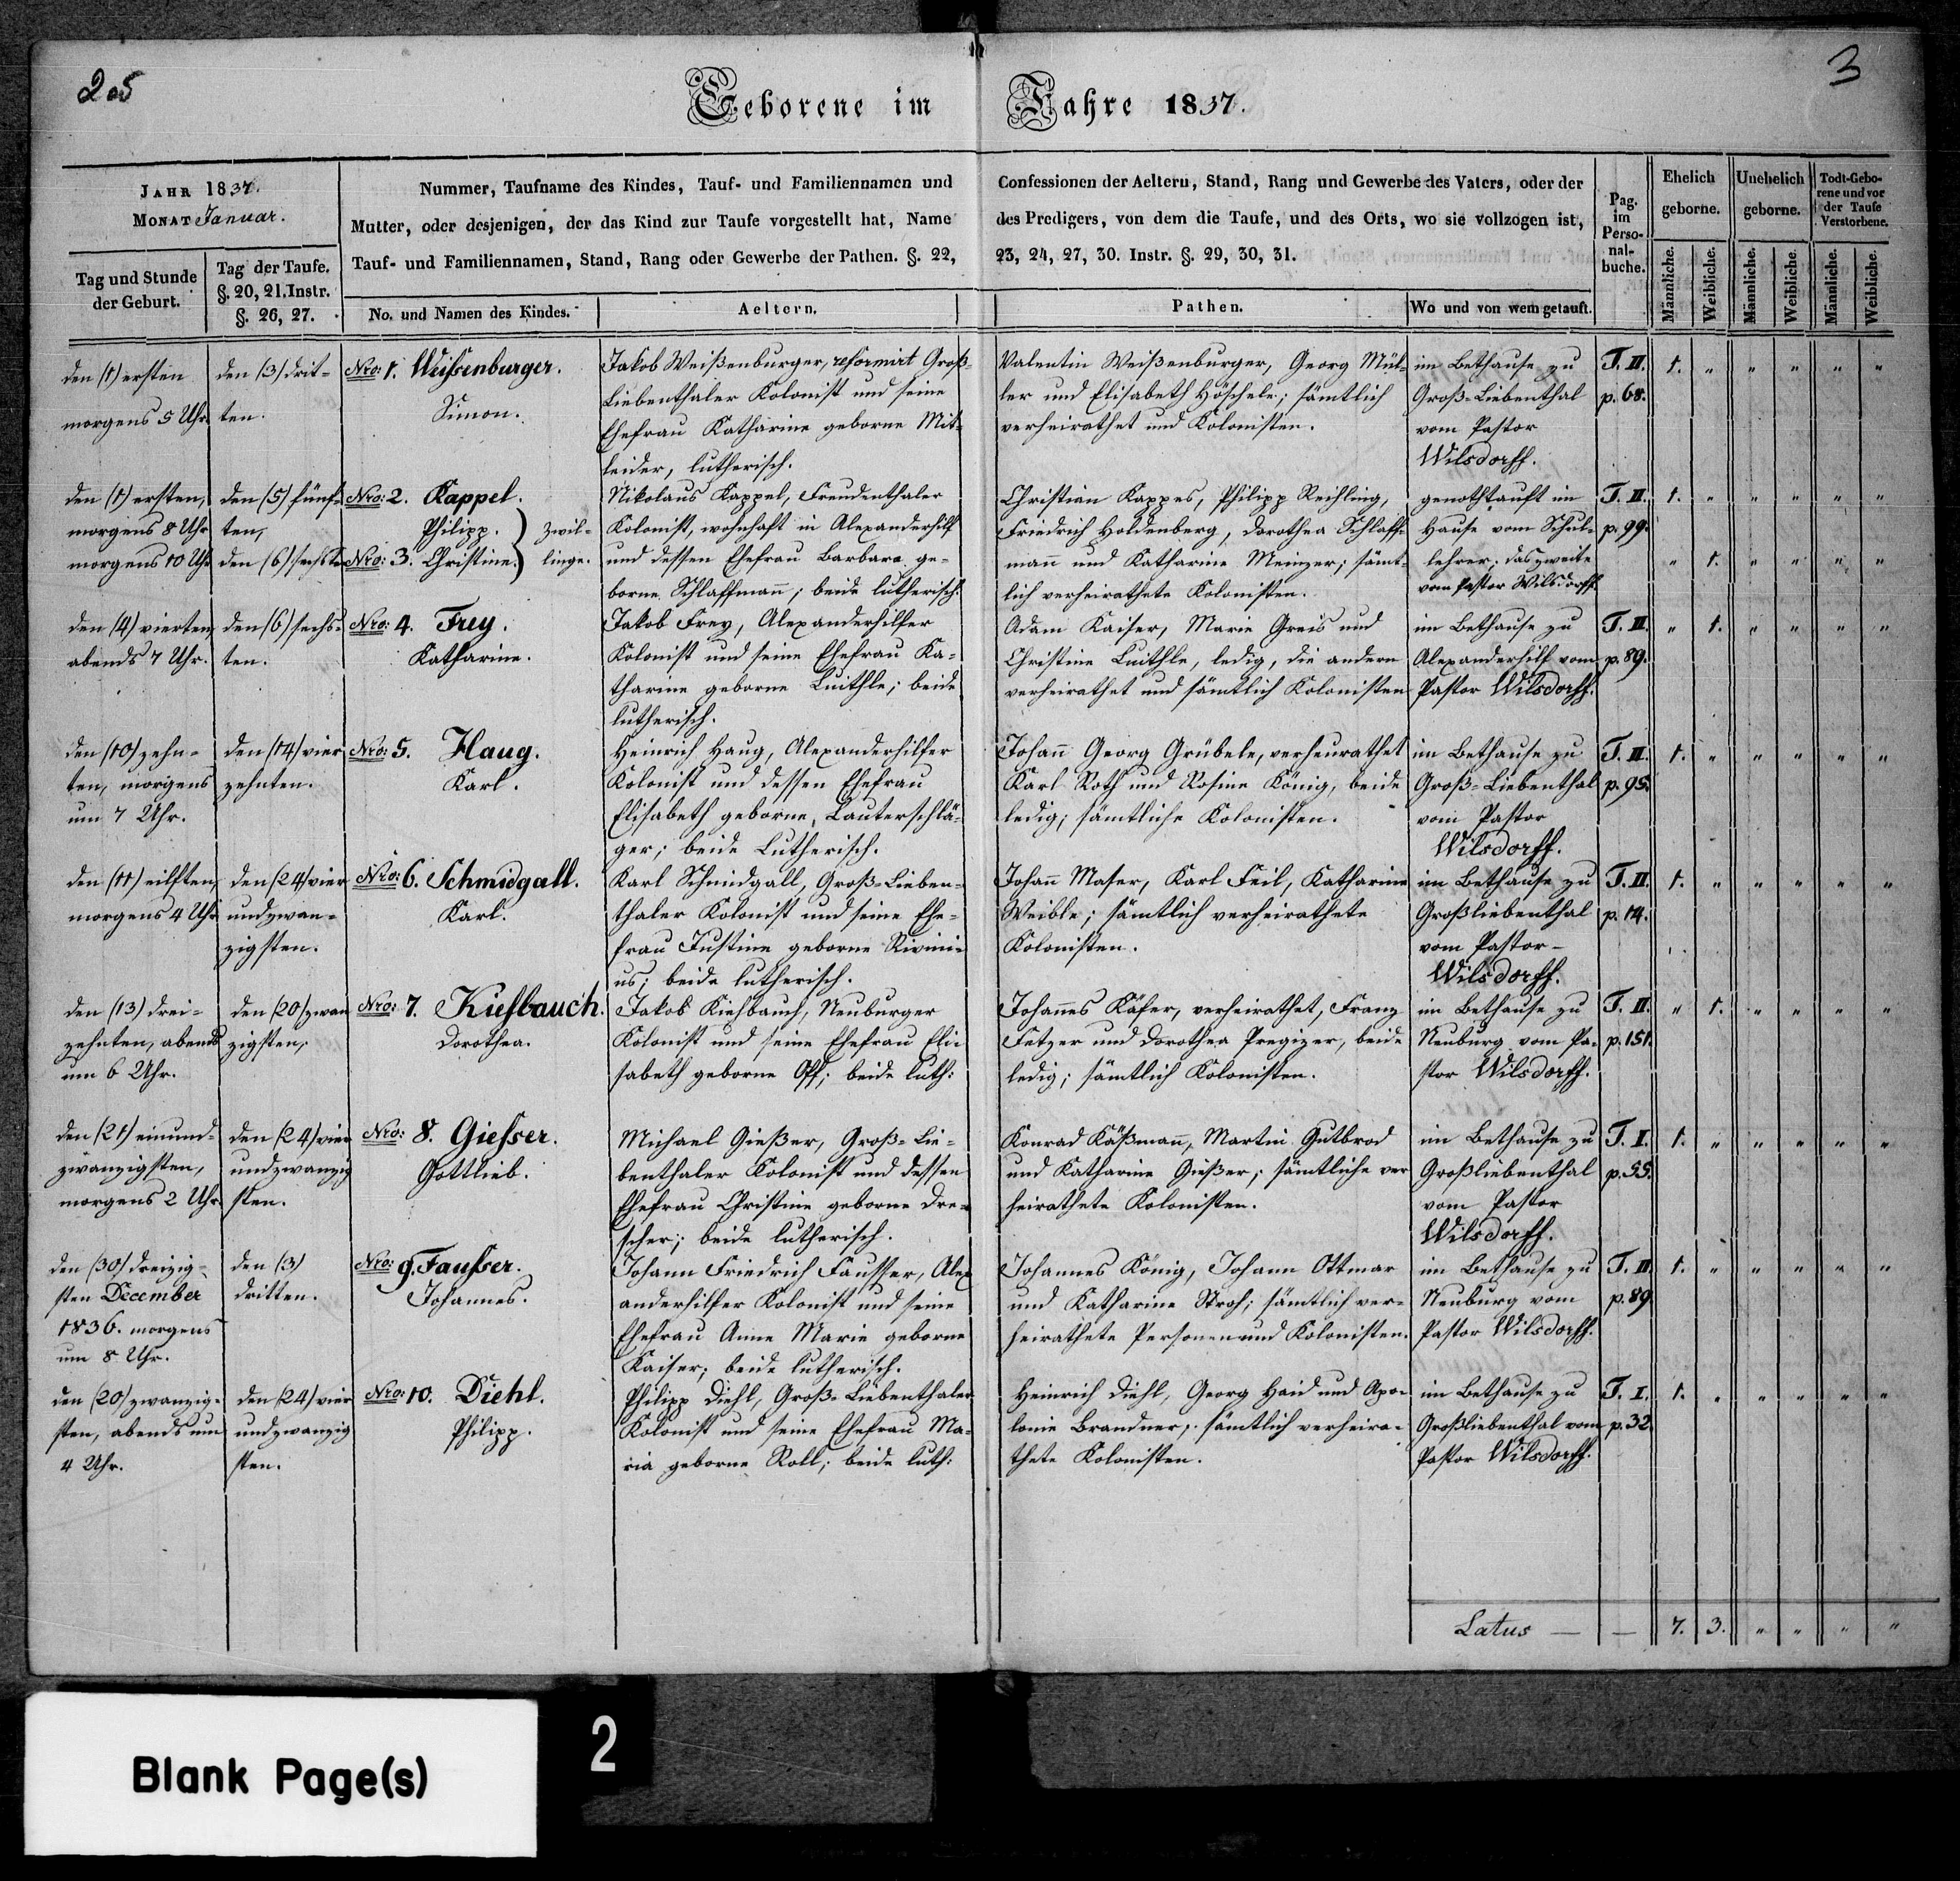 205
3
Geborene im Jahre 1837.
JAHR 1837.
MONAT Januar.
Nummer, Taufname des Kindes, Tauf- und Familiennamen und
Mutter, oder desjenigen, der das Kind zur Taufe vorgestellt hat, Name
Tauf- und Familiennamen, Stand, Rang oder Gewerbe der Pathen. §. 22,
Confessionen der Aeltern, Stand, Rang und Gewerbe des Vaters, oder der
des Predigers, von dem die Taufe, und des Orts, wo sie vollzogen ist,
23, 24, 27, 30. Instr. §. 29, 30, 31.
Pag.
im
Perso-
nal-
buche.
Ehelich
geborne.
Unehelich
geborne.
Todt-Gebo-
rene und vor
der Taufe
Verstorbene.
Tag und Stunde
der Geburt.
Tag der Taufe.
§. 20, 21. Instr.
§. 26, 27.
No. und Namen des Kindes.
Aeltern.
Pathen.
Wo und von wem getauft.
Männliche.
Weibliche.
Männliche.
Weibliche.
Männliche.
Weibliche.
den (1) ersten
morgens 5 Uhr
den (3) drit-
ten.
Nro: 1. Weissenburger.
Simon.
Jakob Weißenburger, reformirt Groß-
Liebenthaler Kolonist und seine
Ehefrau Katharine geborne Mit-
leider, lutherisch.
Valentin Weißenburger, Georg Mül-
ler und Elisabeth Höschele; sämtlich
verheirathet und Kolonisten.
im Bethause zu
Groß-Liebenthal
vom Pastor
Wilsdorff.
T. II.
p. 68.
1. " " " " "
den (1) ersten,
morgens 8 Uhr
morgens 10 Uhr
den (5) fünf-
ten,
den (6) sechste
Nro: 2. Kappel.
Philipp.
Nro: 3. Christine.
Zwil-
linge.
Nikolaus Kappel, Freudenthaler
Kolonist, wohnhaft in Alexanderhilf
und dessen Ehefrau Barbara ge-
borne Schlaffmann; beide lutherisch.
Christian Kappes, Philipp Reichling,
Friedrich Holdenberg, Dorothea Schlaff-
mann und Katharine Meinzer; sämt-
lich verheirathete Kolonisten.
genothtauft im
Hause vom Schul-
lehrer; das zweite
vom Pastor Wilsdorff.
T. II.
p. 99.
1. " " " " "
" 1. " " " "
den (4) vierten
abends 7 Uhr.
den (6) sechs-
ten.
Nro: 4. Frey.
Katharine.
Jakob Frey, Alexanderhilfer
Kolonist und seine Ehefrau Ka-
tharine geborne Luithle; beide
lutherisch.
Adam Kaiser, Marie Greis und
Christine Luithle, ledig, die andern
verheirathet und sämtlich Kolonisten
im Bethause zu
Alexanderhilf vom
Pastor Wilsdorff.
T. II.
p. 89.
" 1. " " " "
den (10) zehn-
ten, morgens
um 7 Uhr.
den (14) vier
zehnten.
Nro: 5. Haug.
Karl.
Heinrich Haug, Alexanderhilfer
Kolonist und dessen Ehefrau
Elisabeth geborne Lauterschlä-
ger; beide Lutherisch.
Johann Georg Grübele, verheurathet
Karl Roth und Rosine König, beide
ledig; sämtliche Kolonisten.
im Bethause zu
Groß-Liebenthal
vom Pastor
Wilsdorff.
T. II.
p. 95.
1. " " " " "
den (11) eilften,
morgens 4 Uhr
den (24) vier
undzwan-
zigsten.
Nro: 6. Schmidgall.
Karl.
Karl Schmidgall, Groß-Lieben-
thaler Kolonist und seine Ehe-
frau Justine geborne Rivini-
us; beide lutherisch.
Johann Maser, Karl Feil, Katharine
Weible; sämtlich verheirathete
Kolonisten.
im Bethause zu
Großliebenthal
vom Pastor
Wilsdorff.
T. II.
p. 14.
1. " " " " "
den (13) drei-
zehnten, abends
um 6 Uhr.
den (20) zwan
zigsten,
Nro: 7. Kiesbauch.
Dorothea.
Jakob Kiesbauch, Neuburger
Kolonist und seine Ehefrau Eli-
sabeth geborne Opp; beide luth:
Johannes Käfer, verheirathet, Franz
Fetzer und Dorothea Pregizer, beide
ledig; sämtlich Kolonisten.
im Bethause zu
Neuburg vom Pa-
stor Wilsdorff.
T. II.
p. 151.
" 1. " " " "
den (21) einund-
zwanzigsten,
morgens 2 Uhr
den (24) vier
undzwanzig
sten.
Nro: 8. Giesser.
Gottlieb.
Michael Gießer, Groß-Lie-
benthaler Kolonist und dessen
Ehefrau Christine geborne Dre-
scher; beide lutherisch.
Konrad Käßmann, Martin Gutbrod
und Katharine Gießer; sämtliche ver
heirathete Kolonisten.
im Bethause zu
Großliebenthal
vom Pastor
Wilsdorff.
T. I.
p. 55.
1. " " " " "
den (30) dreizig-
sten December
1836. morgens
um 8 Uhr.
den (3)
dritten.
Nro: 9. Fausser.
Johannes.
Johann Friedrich Fausser, Alex
anderhilfer Kolonist und seine
Ehefrau Anne Marie geborne
Kaiser; beide lutherisch.
Johannes König, Johann Ottmar
und Katharine Stroh; sämtlich ver-
heirathete Personen und Kolonisten.
im Bethause zu
Neuburg vom
Pastor Wilsdorff.
T. II
p. 89
1. " " " " "
den (20) zwanzig-
sten, abends um
4 Uhr.
den (24) vier
undzwanzig
sten.
Nro: 10. Diehl.
Philipp.
Philipp Diehl, Groß-Liebenthaler
Kolonist und seine Ehefrau Ma-
ria geborne Roll; beide luth:
Heinrich Diehl, Georg Haid und Apo-
lonie Brandner; sämtlich verheira-
thete Kolonisten.
im Bethause zu
Großliebenthal vom
Pastor Wilsdorff.
T. I.
p. 32.
1. " " " " "
Latus — — 7. 3. " " " "
Blank Page(s)
2